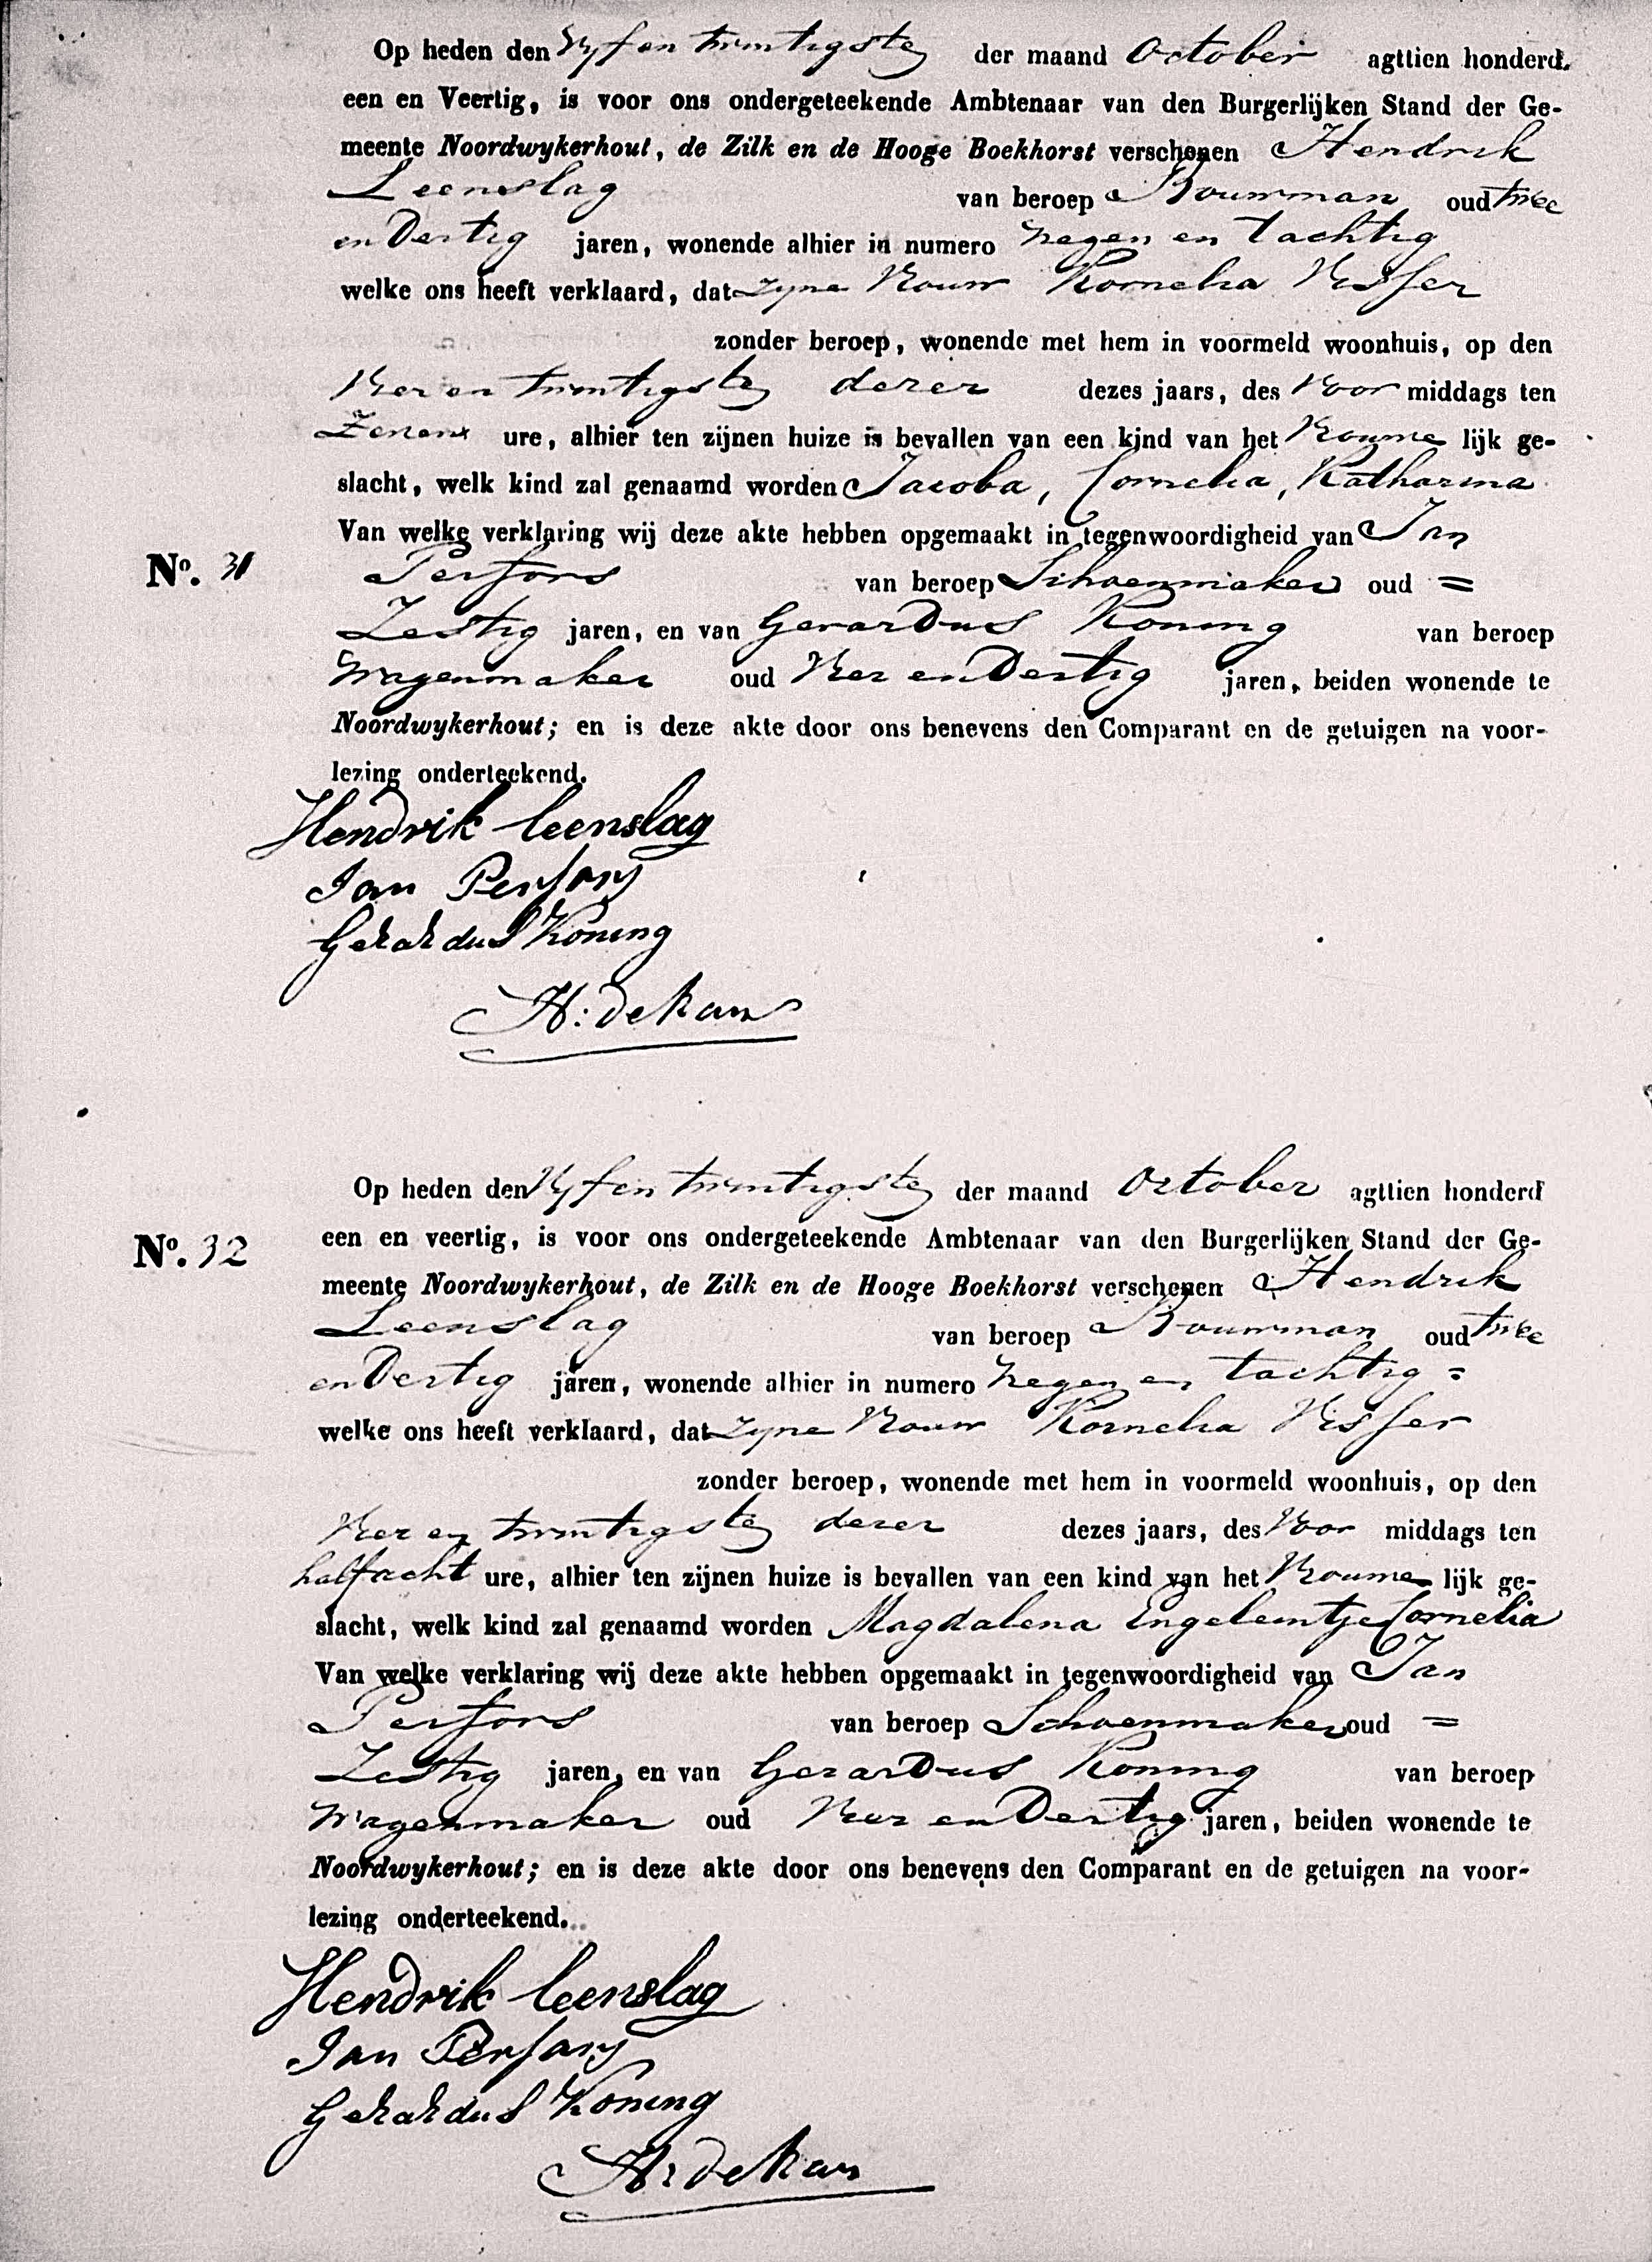 Op heden den Vyf en twintigste der maand October agttien honderd
een en Veertig, is voor ons ondergeteekende Ambtenaar van den Burgerlijken Stand der Ge-
meente Noordwykerhout, de Zilk en de Hooge Boekhorst verschenen Hendrik
Leenslag van beroep Bouwman oud twee
en Dertig jaren, wonende alhier in numero negen en tachtig
welke ons heeft verklaard, dat zyne Vrouw Kornelia Visser
zonder beroep, wonende met hem in voormeld woonhuis, op den
Vier en twintigste dezer dezes jaars, des Voor middags ten
Zeven ure, alhier ten zijnen huize is bevallen van een kind van het Vrouwe lijk ge-
slacht, welk kind zal genaamd worden Jacoba, Cornelia, Katharina
Van welke verklaring wij deze akte hebben opgemaakt in tegenwoordigheid van Jan
No. 31 Persors van beroep Schoenmaker oud =
Zestig jaren, en van Gerardus Koning van beroep
Wagenmaker oud Vier en Dertig jaren, beiden wonende te
Noordwykerhout; en is deze akte door ons benevens den Comparant en de getuigen na voor-
lezing onderteekend.
Hendrik Leenslag
Jan
Gerardus Koning
Op heden den Vyf en twintigste der maand October agttien honderd
No. 32 een en veertig, is voor ons ondergeteekende Ambtenaar van den Burgerlijken Stand der Ge-
meente Noordwykerhout, de Zilk en de Hooge Boekhorst verschenen Hendrik
Leenslag van beroep Bouwman oud twee
en Dertig jaren, wonende alhier in numero negen en tachtig =
welke ons heeft verklaard, dat zyne Vrouw Kornelia Visser
zonder beroep, wonende met hem in voormeld woonhuis, op den
Vier en twintigste dezer dezes jaars, des Voor middags ten
half acht ure, alhier ten zijnen huize is bevallen van een kind van het Vrouwe lijk ge-
slacht, welk kind zal genaamd worden Magdalena Engelentje Cornelia
Van welke verklaring wij deze akte hebben opgemaakt in tegenwoordigheid van Jan
Persors van beroep Schoenmaker oud =
Zestig jaren, en van Gerardus Koning van beroep
Wagenmaker oud Vier en Dertig jaren, beiden wonende te
Noordwykerhout; en is deze akte door ons benevens den Comparant en de getuigen na voor-
lezing onderteekend.
Hendrik Leenslag
Jan
Gerardus Koning